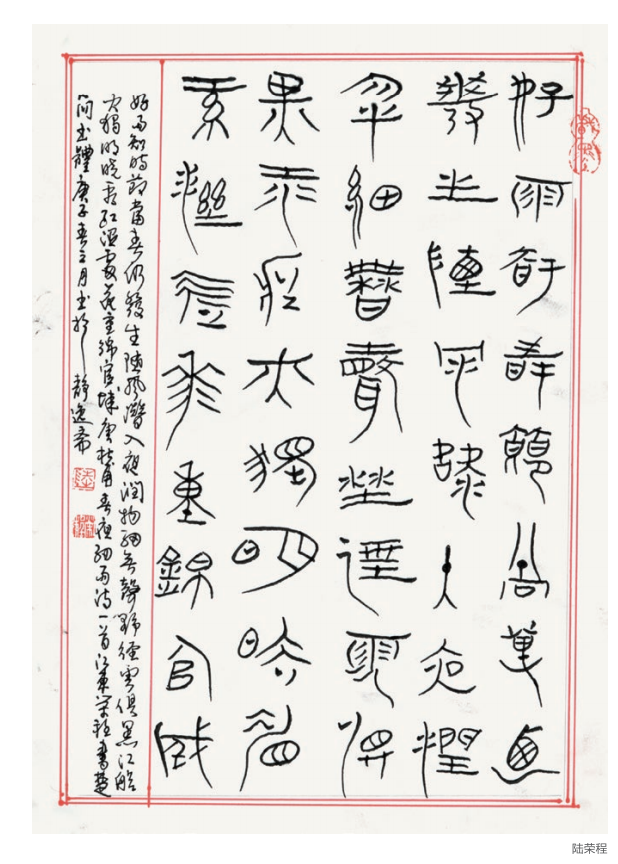 好雨知時節當春乃
發生隨風潛入夜潤
物細無聲野徑雲俱
黑江船火獨明曉看
紅濕處花重錦官城
好雨知時節當春仍發生隨風潛入夜潤物細無聲野徑雲俱黑江船
火獨明曉看紅濕處花重錦官城唐杜甫春夜細雨詩一首江東榮程書楚
简書體庚子春三月書於靜逸斋
陆荣程